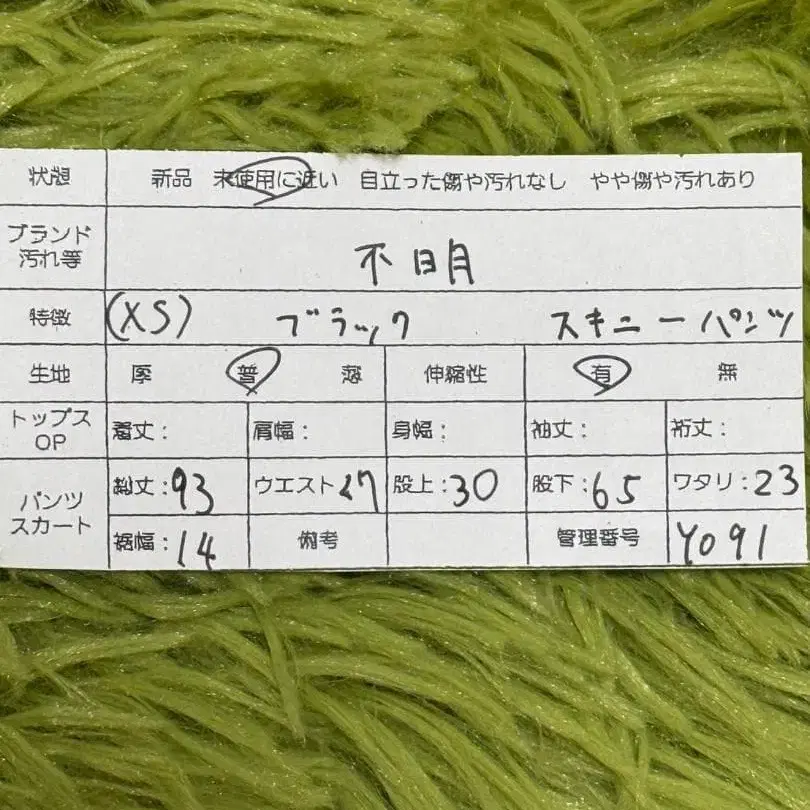 状態 新品 未使用に近い 目立った傷や汚れなし やや傷や汚れあり
ブランド
汚れ等 不明
特徴 (XS) ブラック スキニーパンツ
生地 厚 普 薄 伸縮性 有 無
トップス
OP 着丈: 肩幅: 身幅: 袖丈: 裄丈:
パンツ
スカート 総丈:93 ウエスト 股上:30 股下:65 ワタリ:23
裾幅:14 備考 管理番号 Y091